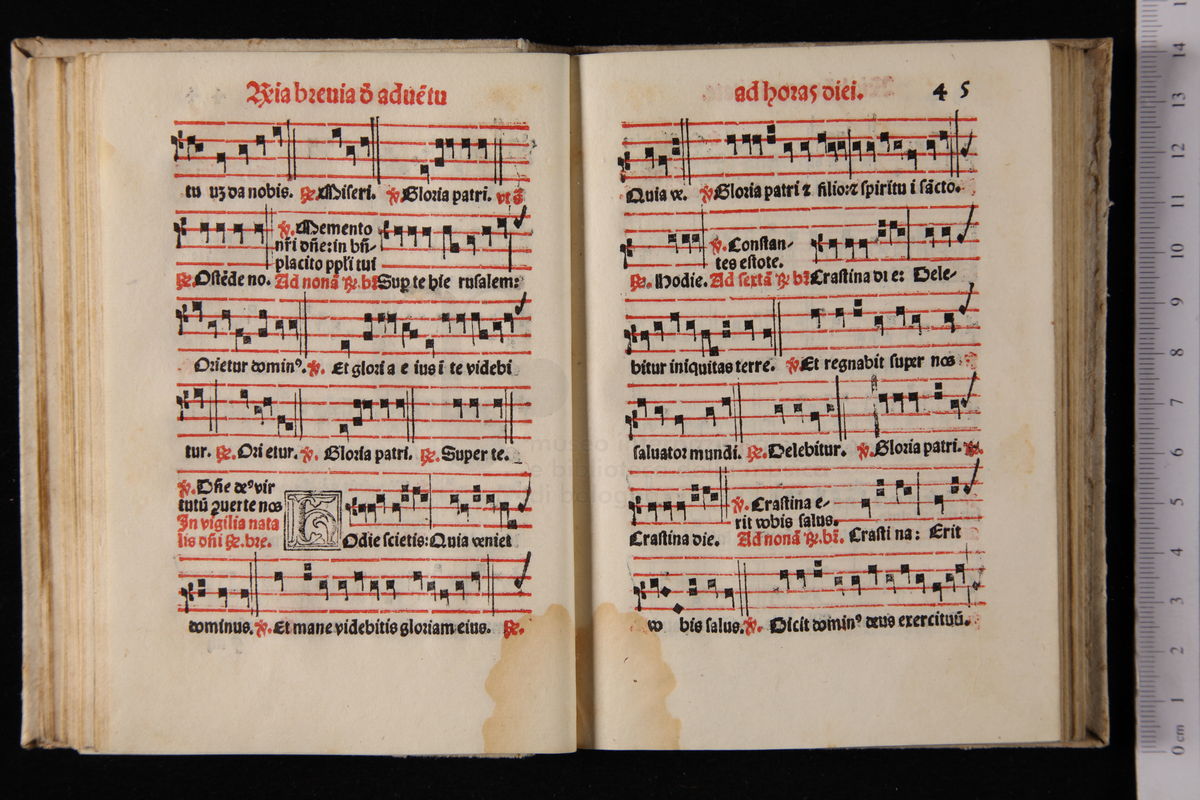 ℟ia breuia ð aduẽtu
tu uz da nobis. ℟. Miseri. ℣. Gloria patri.
℣. Memento
nr̃i dñe: in bñ-
placito ppl̃i tui
℟. Ostẽde no. Ad nonã ℟. br̃ Sup te hie rusalem:
Orietur dominꝰ. ℣. Et glori a e ius ĩ te videbi
tur. ℟. Ori etur. ℣. Gloria patri. ℟. Super te.
℣. Dñe deꝰ vir
tutũ ꝯuerte nos
In vigilia nata
lis dñi ℟. bre.
Hodie scietis: Quia veniet
dominus. ℣. Et mane videbitis gloriam eius. ℟.
ad horas diei. 45
Quia ve. ℣. Gloria patri ⁊ filio: ⁊ spiritu i sãcto.
℣. Constan-
tes estote.
℟. Hodie. Ad sextã ℟. br̃ Crastina di e: Dele-
bitur iniquitas terre. ℣. Et regnabit super nos
saluator mundi. ℟. Delebitur. ℣. Gloria patri. ℟.
℣. Crastina e-
rit vobis salus.
Crastina die. Ad nonã ℟. br̃. Crasti na: Erit
vo bis salus. ℣. Dicit dominꝰ deus exercituũ.
museo
14
13
12
11
10
9
8
7
6
5
4
3
2
1
0 cm